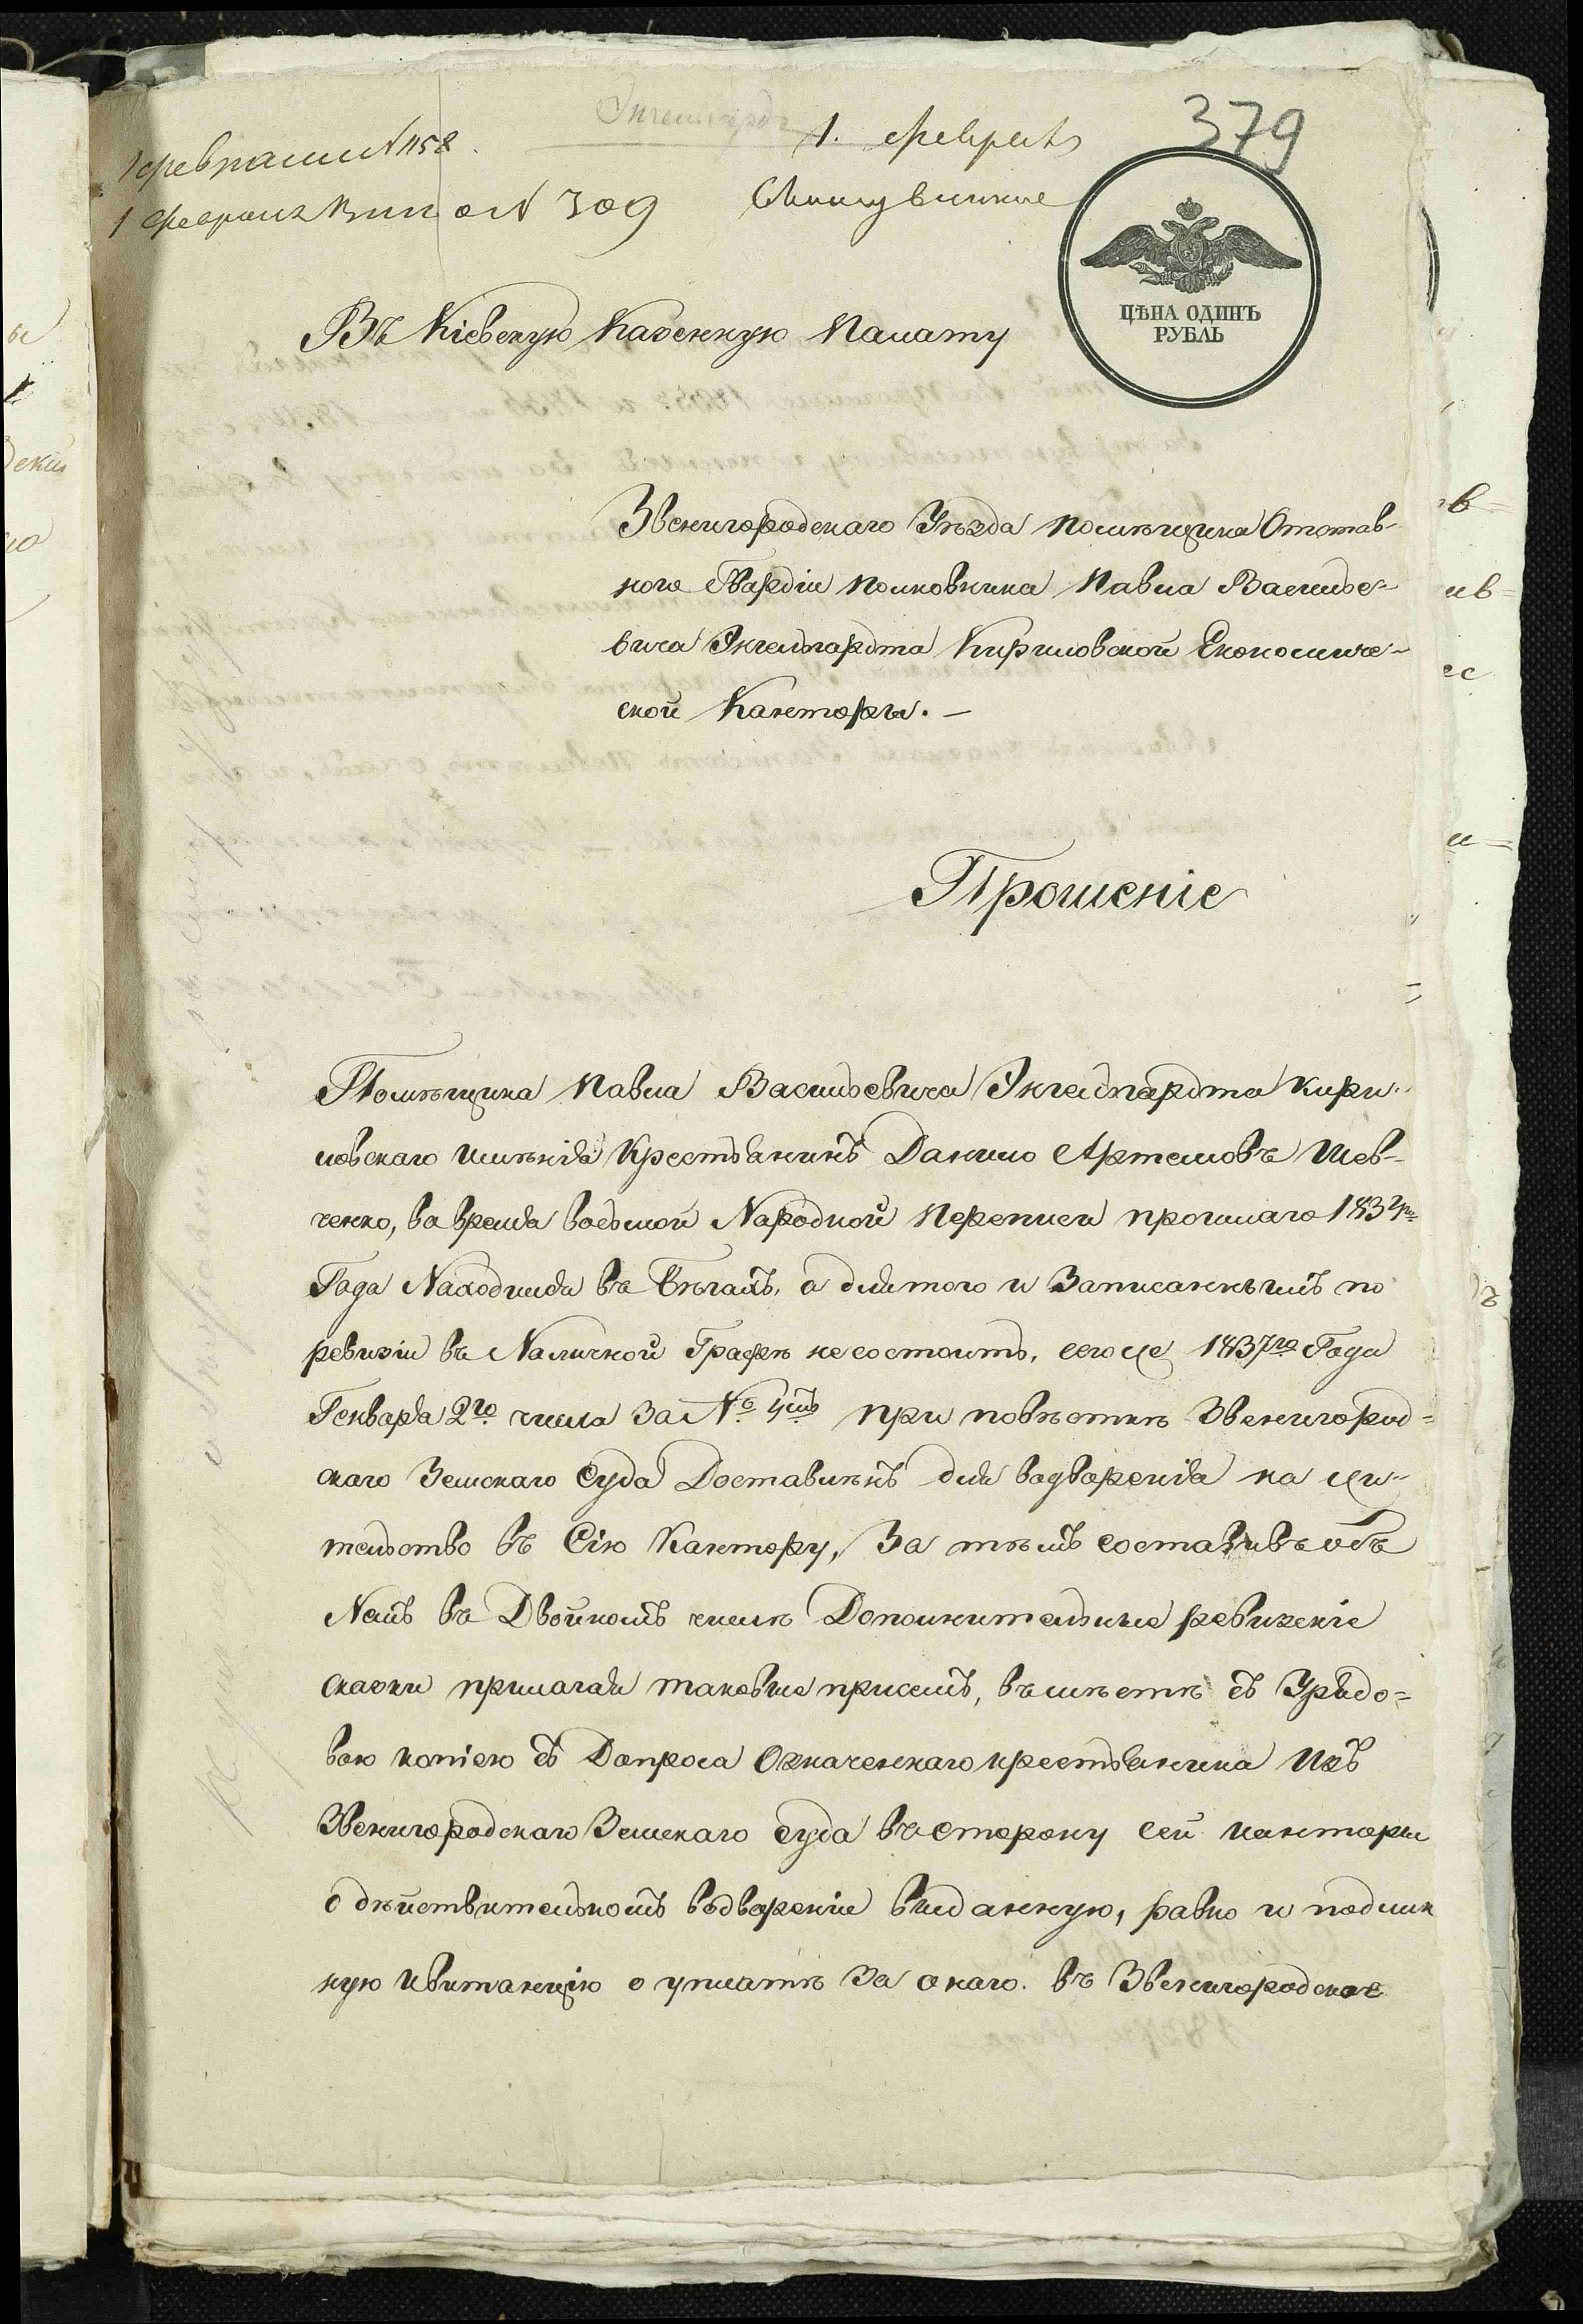 Энгельгардтъ
379
1. Февраля
1 февраля N 1158.
1 февраля N 309
ЦѢНА ОДИНЪ
РУБЛЬ
Въ Кіевскую Казенную Палату
Звенигородскаго Уѣзда помѣщика Отстав-
ного Гвардіи полковника Павла Василье-
вича Энгельгардта Кириловской Економиче-
ской Канторы. —
Прошеніе
Помѣщика Павла Васильевича Энгельгардта Кири-
ловскаго имѣнія Крестьянинъ Данило Артемовъ Шев-
ченко, во время восьмой Народной Переписи прошлаго 1834го
Года Находился въ Бѣгахъ, а для того и Записаннымъ по
ревизіи въ Наличной Графѣ несостоитъ, сего же 1837го Года
Генваря 2го числа За № 4мъ при повѣсткѣ Звенигород=
скаго Земскаго Суда Доставленъ для водворенія на жи-
тельство въ Сію Кантору, За тѣмъ составивъ объ
Немъ въ Двойномъ числѣ Дополнительные ревизскіе
сказки прилагая таковые присемъ, вмѣстѣ съ Урядо=
вою копіею съ Допроса Означеннаго крестьянина Изъ
Звенигородскаго Земскаго Суда въ сторону сей канторы
о дѣйствительномъ водвореніи выданную, равно и подлин
ную квитанцію о уплатѣ За онаго. въ Звенигородское